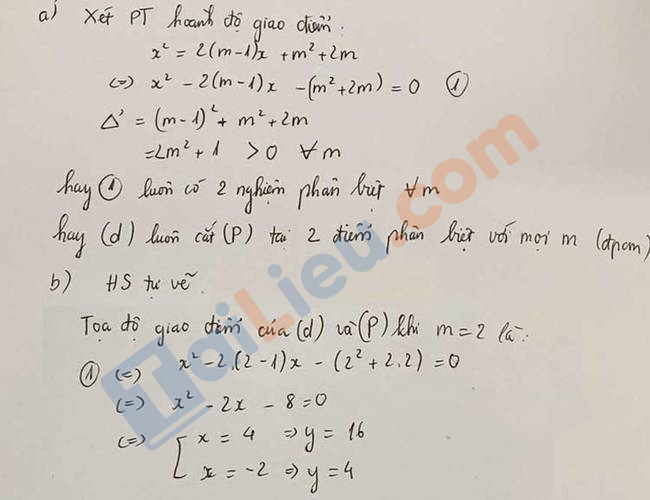 a) Xét PT hoành độ giao điểm:
x² = 2(m-1)x + m² + 2m
(=) x² - 2(m-1)x - (m² + 2m) = 0 ①
Δ' = (m-1)² + m² + 2m
= 2m² + 1 > 0 ∀m
hay ① luôn có 2 nghiệm phân biệt ∀m
hay (d) luôn cắt (P) tại 2 điểm phân biệt với mọi m (đpcm)
b) HS tự vẽ.
Tọa độ giao điểm của (d) và (P) khi m = 2 là:
① (=) x² - 2.(2-1)x - (2² + 2.2) = 0
(=) x² - 2x - 8 = 0
(=) [ x = 4 => y = 16
x = -2 => y = 4
TaiLieu.com